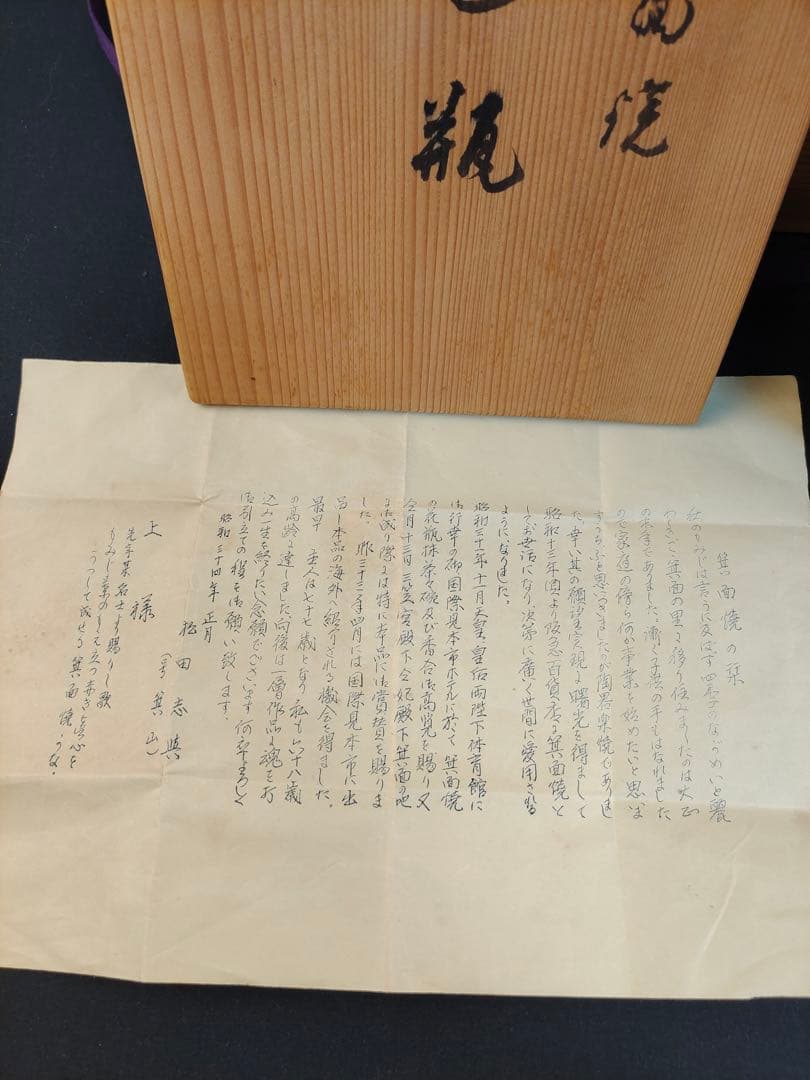 焼
瓶
箕面焼の栞
秋のもみじは言うに及ばず四季のながめいと麗
わしきここ箕面の里に移り住みましたのは大正
の末年でありました、漸く子供の手もはなれました
ので家庭の傍ら何か事業を始めたいと思いま
すうちふと思いつきましたのが陶器楽焼でありまし
た、幸い其の願望実現に曙光を得まして
昭和十三年頃より阪急百貨店に箕面焼と
してお世話になり次第に廣く世間に愛用される
ようになりました。
昭和三十一年十一月天皇皇后両陛下体育館に
御行幸の御国際見本市ホテルに於て箕面焼
の花瓶抹茶々碗及び香合御高覧を賜り又
仝月十三日三笠宮殿下仝妃殿下箕面の地
に御成り際には特に本品に御賞賛を賜りま
した。昨三十三年四月には国際見本市に出
品し本品の海外に紹介される機会を得ました。
最早 主人は七十七歳となり私も六十八歳
の高齢に達しました向後は一層作品に魂を打
込み一生を終りたい念願でございます何卒よろしく
御引立ての程を御願い致します。
昭和三十四年 正月
松田志與
(号箕山)
上 様
先年某名士より賜りし歌
もみじ葉のもえ立つ赤き真心を
こうして成せる箕面焼かな